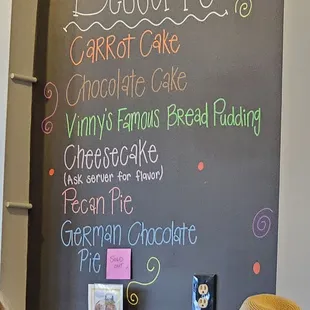 Carrot Cake
Chocolate Cake
Vinny's Famous Bread Pudding
Cheesecake
(Ask server for flavor)
Pecan Pie
German Chocolate
Pie